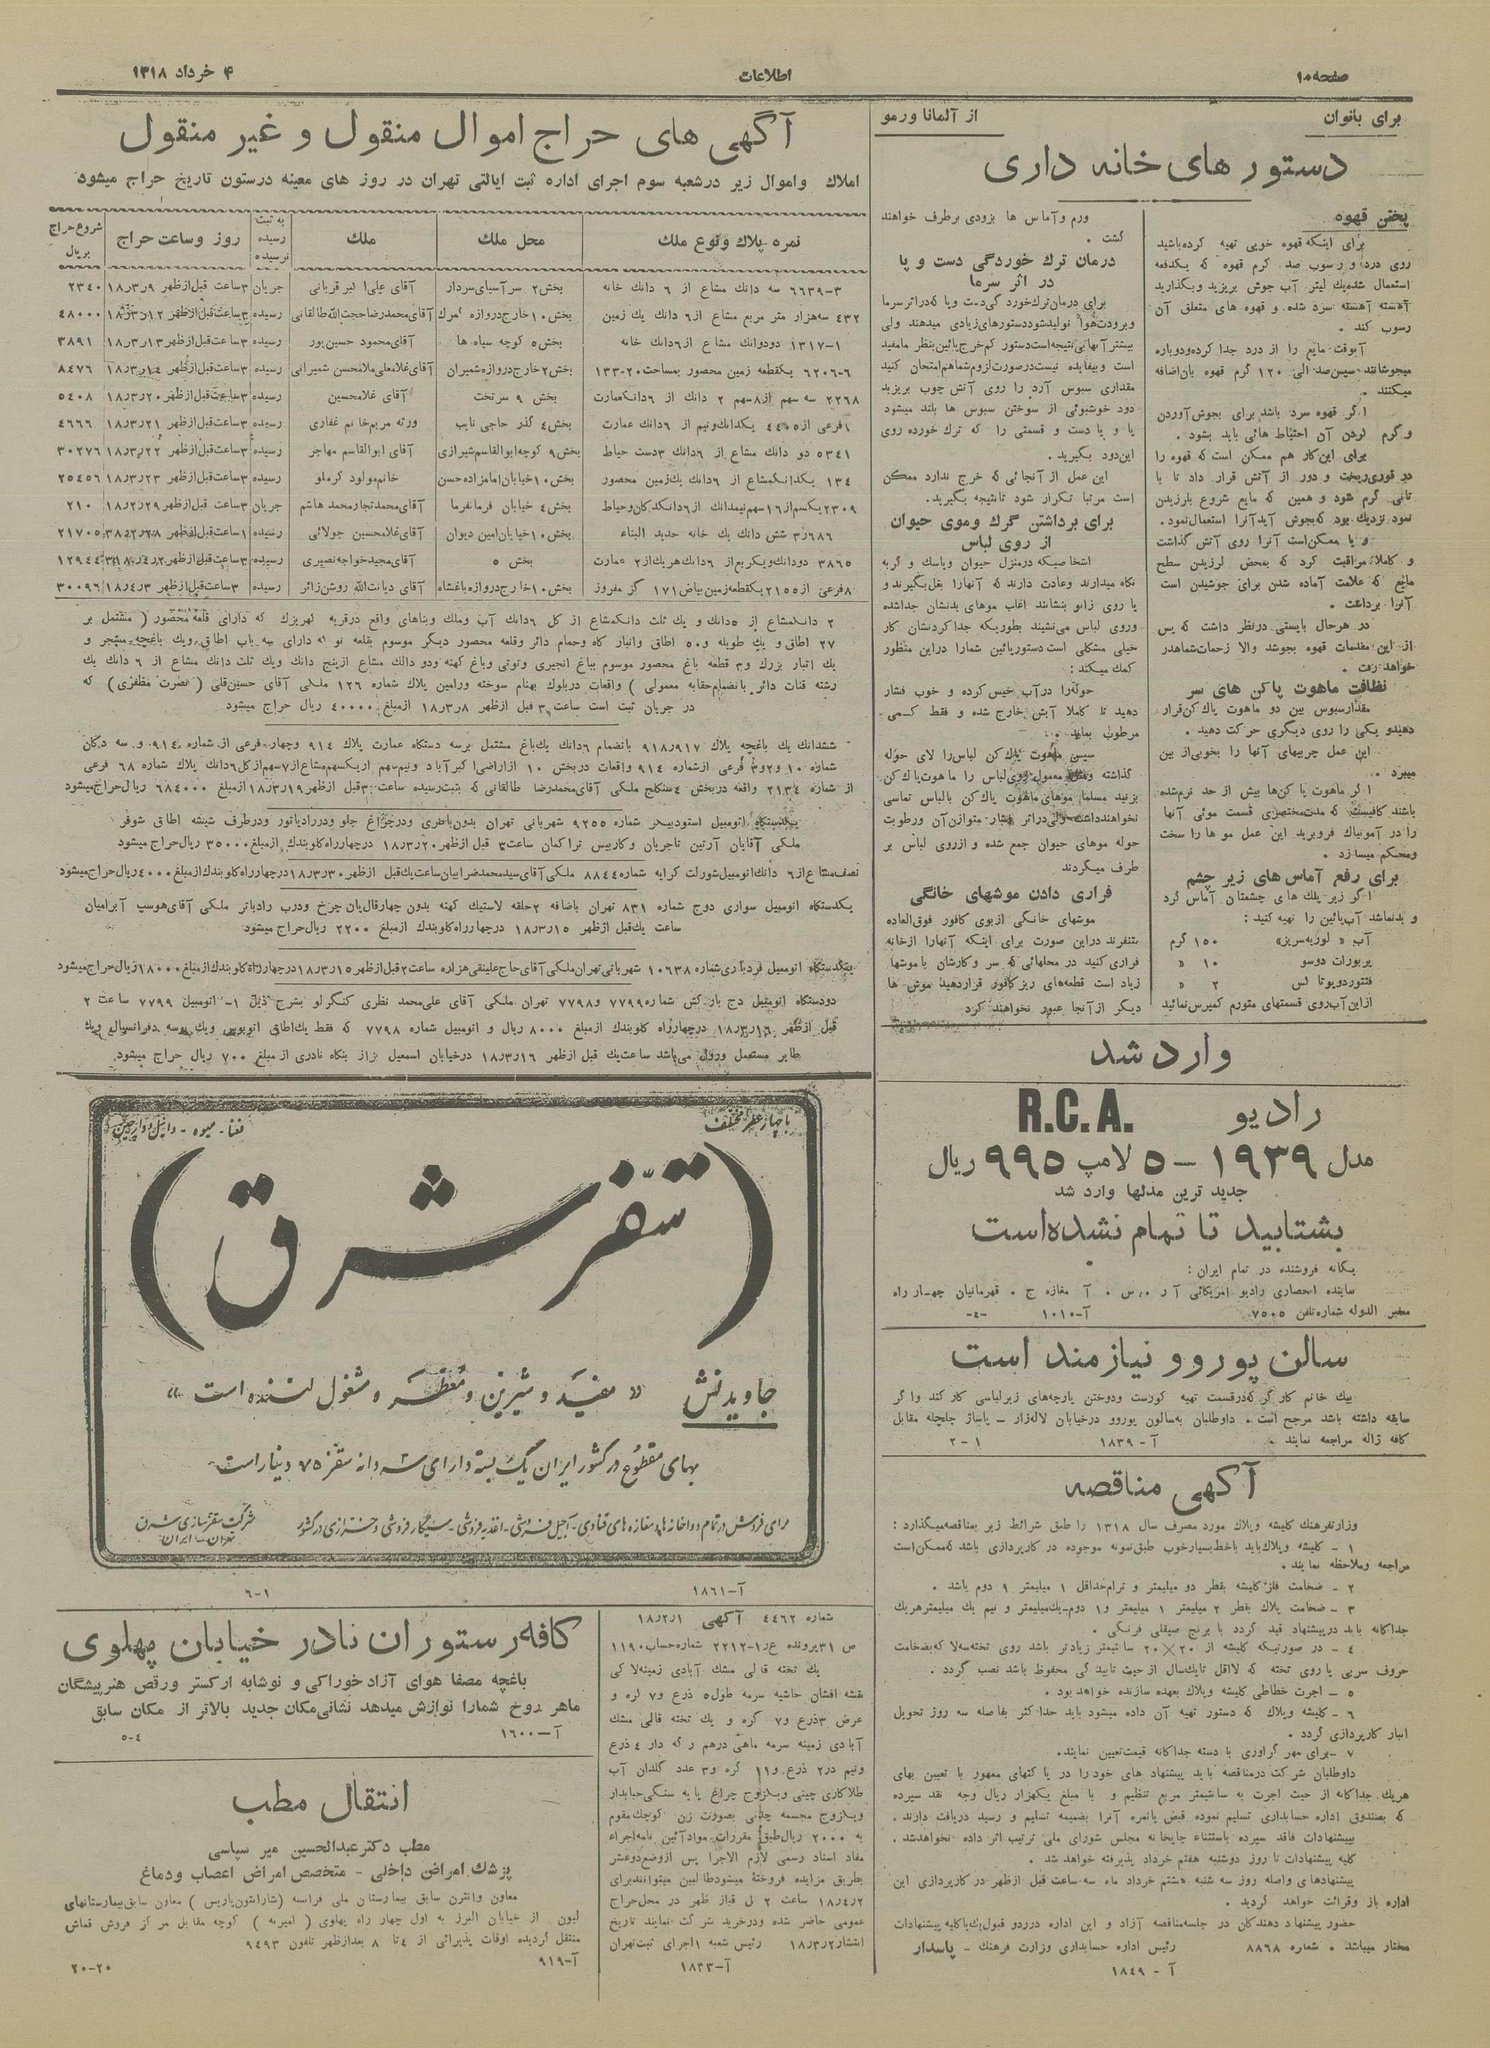 صفحه ۱۰
اطلاعات
۴ خرداد ۱۳۱۸
برای بانوان
از آلمانا ورمو
دستور های خانه داری
پختن قهوه
برای اینکه قهوه خوبی تهیه کرده‌باشید
روی درد و رسوب صد گرم قهوه که یکدفعه
استعمال شده‌یك لیتر آب جوش بریزید وبگذارید
آهسته آهسته سرد شده و قهوه های متعلق آن
رسوب کند .
آنوقت مایع را از درد جدا کرده‌ودوباره
میجوشانند سپس‌صد الی ۱۲۰ گرم قهوه بان‌اضافه
میکنند .
اگر قهوه سرد باشد برای بجوش‌آوردن
و گرم کردن آن احتیاط هائی باید بشود .
برای این‌کار هم ممکن است که قهوه را
در قوری‌ریخت و دور از آتش قرار داد تا با
تانی گرم شود و همین که مایع شروع بلرزیدن
نمود نزدیك بود که‌بجوش آید آنرا استعمال‌نمود.
و یا ممکن‌است آنرا روی آتش گذاشت
و کاملا مراقبت کرد که بمحض لرزیدن سطح
مایع که علامت آماده شدن برای جوشیدن است
آنرا برداشت .
در هرحال بایستی درنظر داشت که پس
از این مقدمات قهوه بجوشد والا زحمات‌شماهدر
خواهد رفت .
نظافت ماهوت پاکن های سر
مقدارسبوس بین دو ماهوت پاك‌کن‌قرار
دهیدو یکی را روی دیگری حرکت دهید .
این عمل چربیهای آنها را بخوبی‌از بین
میبرد .
اگر ماهوت پا کن‌ها بیش از حد نرم‌شده
باشند کافیست که مدت‌مختصری قسمت موئی آنها
را در آمونیاك فروبرید این عمل مو ها را سخت
ومحکم میسازد .
برای رفع آماس های زیر چشم
اگر زیر پلك های چشمتان آماس کرد
و بدنماشد آب‌پائین را تهیه کنید :
آب « لوزیه‌سریز» ۱۵۰ گرم
پربورات دوسو ۱۰ «
فنتوردویوتا لس ۲ «
ازاین‌آب‌روی قسمتهای متورم کمپرس‌نمائید
ورم وآماس ها بزودی برطرف خواهند
گشت .
درمان ترك خوردگی دست و پا
در اثر سرما
برای درمان‌ترك‌خوردگی‌دست وپا که‌دراثرسرما
وبرودت‌هوا تولیدشوددستورهای‌زیادی میدهند ولی
بیشتر آنهابی‌نتیجه‌است‌دستور کم‌خرج‌پائین‌بنظر مامفید
است وبیفایده نیست‌درصورت‌لزوم‌شماهم‌امتحان کنید
مقداری سبوس آرد را روی آتش چوب بریزید
دود خوشبوئی از سوختن سبوس ها بلند میشود
پا و یا دست و قسمتی را که ترك خورده روی
این‌دود بگیرید .
این عمل از آنجائی که خرج ندارد ممکن
است مرتبا تکرار شود تانتیجه بگیرید.
برای برداشتن گرك وموی حیوان
از روی لباس
اشخا صیکه درمنزل حیوان وباسك و گربه
نگاه میدارند وعادت دارند که آنهارا بغل‌بگیرند و
یا روی زانو بنشانند اغلب موهای بدنشان جداشده
وروی لباس می‌نشیند بطوریکه جدا کردنشان کار
خیلی مشکلی است‌دستورپائین شمارا دراین منظور
کمك میکند :
حوله‌را درآب خیس‌کرده و خوب فشار
دهید تا کاملا آبش خارج شده و فقط کمی
مرطوب بماند .
سپس ماهوت پاك‌کن لباس‌را لای حوله
گذاشته و معمول روی‌لباس را ماهوت‌پاك‌کن
بزنید مسلما موهای ماهوت پاك‌کن بالباس تماسی
نخواهدداشت ولی‌دراثر فشار متوازن‌آن ورطوبت
حوله موهای حیوان جمع شده و ازروی لباس بر
طرف میگردند
فراری دادن موشهای خانگی
موشهای خانگی ازبوی کافور فوق‌العاده
متنفرند دراین صورت برای اینکه آنهارا ازخانه
فراری کنید در محلهائی که سر وکارشان باموشها
زیاد است قطعه‌های ریزکافور قراردهید موش ها
دیگر از آنجا عبور نخواهند کرد
وارد شد
رادیو R.C.A.
مدل ۱۹۳۹ – ۵ لامپ ۹۹۵ ریال
جدید ترین مدلها وارد شد
بشتابید تا تمام نشده‌است
یگانه فروشنده در تمام ایران :
نماینده انحصاری رادیو امریکائی آ ر . س . آ مغازه ج . قهرمانیان چهار راه
مخبر الدوله شماره‌تلفن ۷۵۰۵ آ-۱۰۱۰ -۴-
سالن پوروو نیازمند است
بیك خانم کارگر که‌درقسمت تهیه کورست ودوختن پارچه‌های زیرلباسی کار کند وا گر
سابقه داشته باشد مرجح است . داوطلبان به‌سالون پوروو درخیابان لاله‌زار – پاساژ چلچله مقابل
کافه ژاله مراجعه نمایند . آ - ۱۸۳۹ ۱ - ۲
آگهی مناقصه
وزارتفرهنك کلیشه وپلاك مورد مصرف سال ۱۳۱۸ را طبق شرائط زیر بمناقصه‌میگذارد :
۱ - کلیشه وپلاك‌باید باخط‌بسیارخوب طبق‌نمونه موجوده در کارپردازی باشد که‌ممکن‌است
مراجعه وملاحظه نمایند .
۲ - ضخامت فلز کلیشه بقطر دو میلیمتر و ترام‌حداقل ۱ میلیمتر ۱ دوم باشد .
۳ - ضخامت پلاك بقطر ۲ میلیمتر ۱ میلیمتر و۱ دوم-یك‌میلیمتر و نیم یك میلیمترهریك
جداگانه باید درپیشنهاد قید گردد با برنج صیقلی فرنگی .
۴ - در صورتیکه کلیشه از ۲۰×۲۰ سانتیمتر زیادتر باشد روی تخته‌سه‌لا که‌بضخامت
حروف سربی یا روی تخته که لااقل تایك‌سال از حیث تابیدگی محفوظ باشد نصب گردد .
۵ - اجرت خطاطی کلیشه وپلاك بعهده سازنده خواهد بود .
۶ - کلیشه وپلاك که دستور تهیه آن داده میشود باید حدا کثر بفاصله سه روز تحویل
انبار کارپردازی گردد .
۷ - برای مهر گراوری با دسته جداگانه قیمت‌تعیین نمایند.
داوطلبان شرکت درمناقصه باید پیشنهاد های خود را در پا کتهای ممهور با تعیین بهای
هریك جداگانه از حیث اجرت به سانتیمتر مربع تنظیم و با مبلغ یکهزار ریال وجه نقد سپرده
که بصندوق اداره حسابداری تسلیم نموده قبض یانمره آنرا بضمیمه تسلیم و رسید دریافت دارند .
بپیشنهادات فاقد سپرده باستثناء چاپخانه مجلس شورای ملی ترتیب اثر داده نخواهدشد .
کلیه پیشنهادات تا روز دوشنبه هفتم خرداد پذیرفته خواهد شد .
پیشنهادهای واصله روز سه شنبه هشتم خرداد ماه سه ساعت قبل ازظهر در کارپردازی این
اداره باز وقرائت خواهد گردید .
حضور پیشنهاد دهندگان در جلسه‌مناقصه آزاد و این اداره دررد‌و قبول‌یك‌یاکلیه پیشنهادات
مختار میباشد . شماره ۸۸۶۸ رئیس اداره حسابداری وزارت فرهنك – پاسدار
آ - ۱۸۴۹
آگهی های حراج اموال منقول و غیر منقول
املاك واموال زیر درشعبه سوم اجرای اداره ثبت ایالتی تهران در روز های معینه درستون تاریخ حراج میشود
نمره پلاك ونوع ملك | محل ملك | ملك | به ثبت رسیده نرسیده | روز وساعت حراج | شروع حراج بریال
۳-۶۶۳۹ سه دانك مشاع از ۶ دانك خانه بخش۲ سرآسیای‌سردار آقای علی‌اکبر قربانی جریان ۳ساعت قبل‌ازظهر ۱۸٫۳٫۹ ۲۳۴۰
۴۳۲ سه‌هزار متر مربع مشاع از۶ دانك یك زمین بخش ۱۰خارج‌دروازه گمرك آقای‌محمدرضاحجت‌الله‌طالقانی رسیده ۳ساعت‌قبل‌ازظهر ۱۸٫۳٫۱۲ ۴۸۰۰۰
۱-۱۳۱۷ دودوانك مشاع از ۶دانك خانه بخش۵ کوچه سیاه ها آقای محمود حسین‌پور رسیده ۳ساعت‌قبل‌ازظهر ۱۸٫۳٫۱۳ ۳۸۹۱
۶-۶۲۰۶ یکقطعه زمین محصور بمساحت ۲۰-۱۳۳ بخش۲ خارج‌دروازه‌شمیران آقای‌غلامعلی‌ملامحسن شمیرانی رسیده ۳ساعت‌قبل‌ازظهر ۱۸٫۳٫۱۴ ۸۴۷۶
۲۲۶۸ سه سهم از۸سهم ۲ دانك از ۶دانك‌عمارت بخش ۹ سرتخت آقای غلامحسین رسیده ۳ساعت‌قبل‌ازظهر ۱۸٫۳٫۲۰ ۵۴۰۸
۱فرعی از۴۴۰۵ یکدانك‌ونیم از ۶دانك عمارت بخش۴ گذر حاجی نایب ورثه مریم‌خانم غفاری رسیده ۳ساعت‌قبل‌ازظهر ۱۸٫۳٫۲۱ ۴۶۶۶
۵۳۴۱ دو دانك مشاع از ۶دانك ۳دست حیاط بخش۹ کوچه‌ابوالقاسم‌شیرازی آقای ابوالقاسم مهاجر رسیده ۳ساعت‌قبل‌ازظهر ۱۸٫۳٫۲۲ ۳۰۲۷۶
۱۳۴ یکدانك‌مشاع از ۶دانك یك‌زمین محصور بخش۱۰خیابان‌امامزاده‌حسن خانم‌مولود کرملو رسیده ۳ساعت‌قبل‌ازظهر ۱۸٫۳٫۲۳ ۲۵۴۵۶
۲۳۰۹ یکسم‌از۱۶سهم‌نیمدانك از ۶دانك‌دکان‌وحیاط بخش۴ خیابان فرمانفرما آقای‌محمدتجارمحمد هاشم جریان ۳ساعت‌قبل‌ازظهر ۱۸٫۲٫۲۹ ۲۱۰
۳٫۶۸۶ شش دانك یك خانه جدید البناء بخش۱۰خیابان‌امین دیوان آقای‌غلامحسین جولائی رسیده ۲۱۷۰۵
۳۸۶۵ دودانك‌ویکربع از ۶دانك هریك‌از ۲ عمارت بخش ۵ آقای‌مجیدخواجه‌نصیری رسیده ۱۲۹۴۴
۸فرعی از ۲۱۵۵یکقطعه‌زمین‌بیاض ۱۷۱ گز مفروز بخش۱۰خارج‌دروازه‌باغشاه آقای دیانت‌الله روشن‌زائر رسیده ۳ساعت‌قبل‌ازظهر ۱۸٫۴٫۳ ۳۰۰۹۶
۲ دانك‌مشاع از ۵دانك و یك ثلث دانك‌مشاع از کل ۶دانك آب وملك وبناهای واقع درقریه کهریزك که دارای قلعه محصور ( مشتمل بر
۲۷ اطاق و یك طویله و۵۰ اطاق وانبار کاه وحمام دائر وقلعه محصور دیگر موسوم بقلعه نو که دارای سه باب اطاق ویك باغچه مشجر و
یك انبار بزرك و۳ قطعه باغ محصور موسوم بباغ انجیری وتوتی وباغ کهنه ودو دانك مشاع ازپنج دانك ویك ثلث دانك مشاع از ۶ دانك یك
رشته قنات دائر بانضمام‌حقابه معمولی ) واقعات دربلوك بهنام سوخته ورامین پلاك شماره ۱۲۶ ملکی آقای حسین‌قلی ( نصرت مظفری ) که
در جریان ثبت است ساعت ۳ قبل ازظهر ۱۸٫۳٫۸ ازمبلغ ۴۰۰۰۰ ریال حراج میشود
ششدانك یك باغچه پلاك ۹۱۷ر۹۱۸ بانضمام ۶دانك یك‌باغ مشتمل برسه دستگاه عمارت پلاك ۹۱۴ وچهار فرعی از شماره ۹۱۴ و سه دکان
شماره ۱۰ و۲و۳ فرعی ازشماره ۹۱۴ واقعات دربخش ۱۰ ازاراضی اکبرآباد ونیم‌سهم ازیکسهم‌مشاع‌از۷سهم‌ازکل۶دانك پلاك شماره ۶۸ فرعی
از شماره ۲۱۳۴ واقعه دربخش ۴سنگلج ملکی آقای‌محمدرضا طالقانی که بثبت‌رسیده ساعت ۳قبل ازظهر۱۸٫۳٫۱۹ ازمبلغ ۶۸۴۰۰۰ ریال‌حراج‌میشود
یکدستگاه اتومبیل استودبیکر شماره ۹۲۵۵ شهربانی تهران بدون‌باطری ودرچراغ جلو ودررادیاتور ودرطرف شیشه اطاق شوفر
ملکی آقایان آرتین تاجریان وکاربیس تراکمان ساعت۳ قبل ازظهر ۱۸٫۳٫۲۰ درچهارراه‌کلوبندك ازمبلغ ۳۵۰۰۰ ریال‌حراج میشود
نصف‌مشاع از۶ دانك اتومبیل‌شورلت کرایه شماره ۸۸۴۴ ملکی‌آقای‌سیدمحمدضرابیان‌ساعت‌یك‌قبل ازظهر۱۸٫۳٫۳۰ درچهارراه‌کلوبندك ازمبلغ۴۰۰۰ریال‌حراج‌میشود
یکدستگاه اتومبیل سواری دوج شماره ۸۳۱ تهران باضافه ۲حلقه لاستیك کهنه بدون چهارقال‌پان چرخ ودرب رادیاتر ملکی آقای‌هوسپ آبرامیان
ساعت یك‌قبل ازظهر ۱۸٫۳٫۱۵ درچهارراه‌کلوبندك ازمبلغ ۲۲۰۰ ریال‌حراج میشود.
یکدستگاه اتومبیل فردباری‌شماره ۱۰۶۳۸ شهربانی‌تهران‌ملکی‌آقای‌حاج‌علینقی‌هزاده ساعت۲قبل‌ازظهر۱۸٫۳٫۱۵درچهارراه‌کلوبندك‌ازمبلغ۱۸۰۰۰ریال‌حراج‌میشود
دودستگاه اتومبیل دج بارکش شماره ۷۷۹۹و۷۷۹۸ تهران ملکی آقای علی‌محمد نظری کنگرلو بشرح ذیل ۱- اتومبیل ۷۷۹۹ ساعت ۲
قبل ازظهر ۱۸٫۳٫۱۶ درچهارراه کلوبندك ازمبلغ ۸۰۰۰ ریال و اتومبیل شماره ۷۷۹۸ که فقط یك‌اطاق اتوبوس ویك پوسه دفرانسیال ویك
طایر مستعمل ورول می‌باشد ساعت‌یك قبل ازظهر ۱۸٫۳٫۱۶ درخیابان اسمعیل بزاز بنگاه نادری ازمبلغ ۷۰۰ ریال حراج میشود.
با چهار عطر مختلف
نعنا - میوه - وانیل و دارچین
( سقّز شرق )
جاویدنش « مفید و شیرین و معطر و مشغول کننده است »
بهای مقطوع در کشور ایران یک بسته دارای سه دانه سقز ۷۵ دینار است
برای فروش در تمام دواخانه ها و مغازه های قنادی - آجیل فروشی - اغذیه فروشی - سیگار فروشی و خرازی در کشور
شرکت سقز سازی شرق
تهران - ایران
آ-۱۸۶۱ ۱-۶
شماره ۴۴۶۲ آگهی ۱۸٫۲٫۱
ص ۳۱پرونده ع‌ر۱-۲۲۱۲ شماره‌حساب۱۱۹۰
یك تخته قالی مشك آبادی زمینه‌لاکی
نقشه افشان حاشیه سرمه طول۵ ذرع و۷ گره و
عرض ۳ذرع و۷ گره و یك تخته قالی مشك
آبادی زمینه سرمه ماهی درهم رگه دار ۴ ذرع
ونیم در۲ ذرع و۱۱ گره و۳ عدد گلدان آب
طلاکاری چینی ویکزوج چراغ پایه سنگی‌حبابدار
ویکزوج مجسمه چدنی بصورت زن کوچك‌مقوم
به ۲۰۰۰ ریال‌طبق مقررات موادآئین نامه‌اجراء
مفاد اسناد رسمی لازم الاجرا پس ازوضع‌دوعشر
بطریق مزایده فروخته میشودطالبین میتوانندبرای
۱۸٫۴٫۲ ساعت ۲ قبل از ظهر در محل‌حراج
عمومی حاضر شده ودرخرید شرکت نمایند تاریخ
انتشار ۱۸٫۳٫۲ رئیس شعبه ۱اجرای ثبت‌تهران
آ-۱۸۳۳
کافه رستوران نادر خیابان پهلوی
باغچه مصفا هوای آزاد خوراکی و نوشابه ارکستر ورقص هنرپیشگان
ماهر روح شمارا نوازش میدهد نشانی‌مکان جدید بالاتر از مکان سابق
آ-۱۶۰۰ ۴-۵
انتقال مطب
مطب دکتر عبدالحسین میر سپاسی
پزشك امراض داخلی – متخصص امراض اعصاب ودماغ
معاون وانترن سابق بیمارستان ملی فرانسه (شارانتون‌پاریس ) معاون سابق‌بیمارستانهای
لیون از خیابان البرز به اول چهار راه پهلوی ( امیریه ) کوچه مقابل مرکز فروش قماش
منتقل گردیده اوقات پذیرائی از ۴ تا ۸ بعدازظهر تلفون ۹۴۹۳
آ-۹۱۹ ۲۰-۲۰